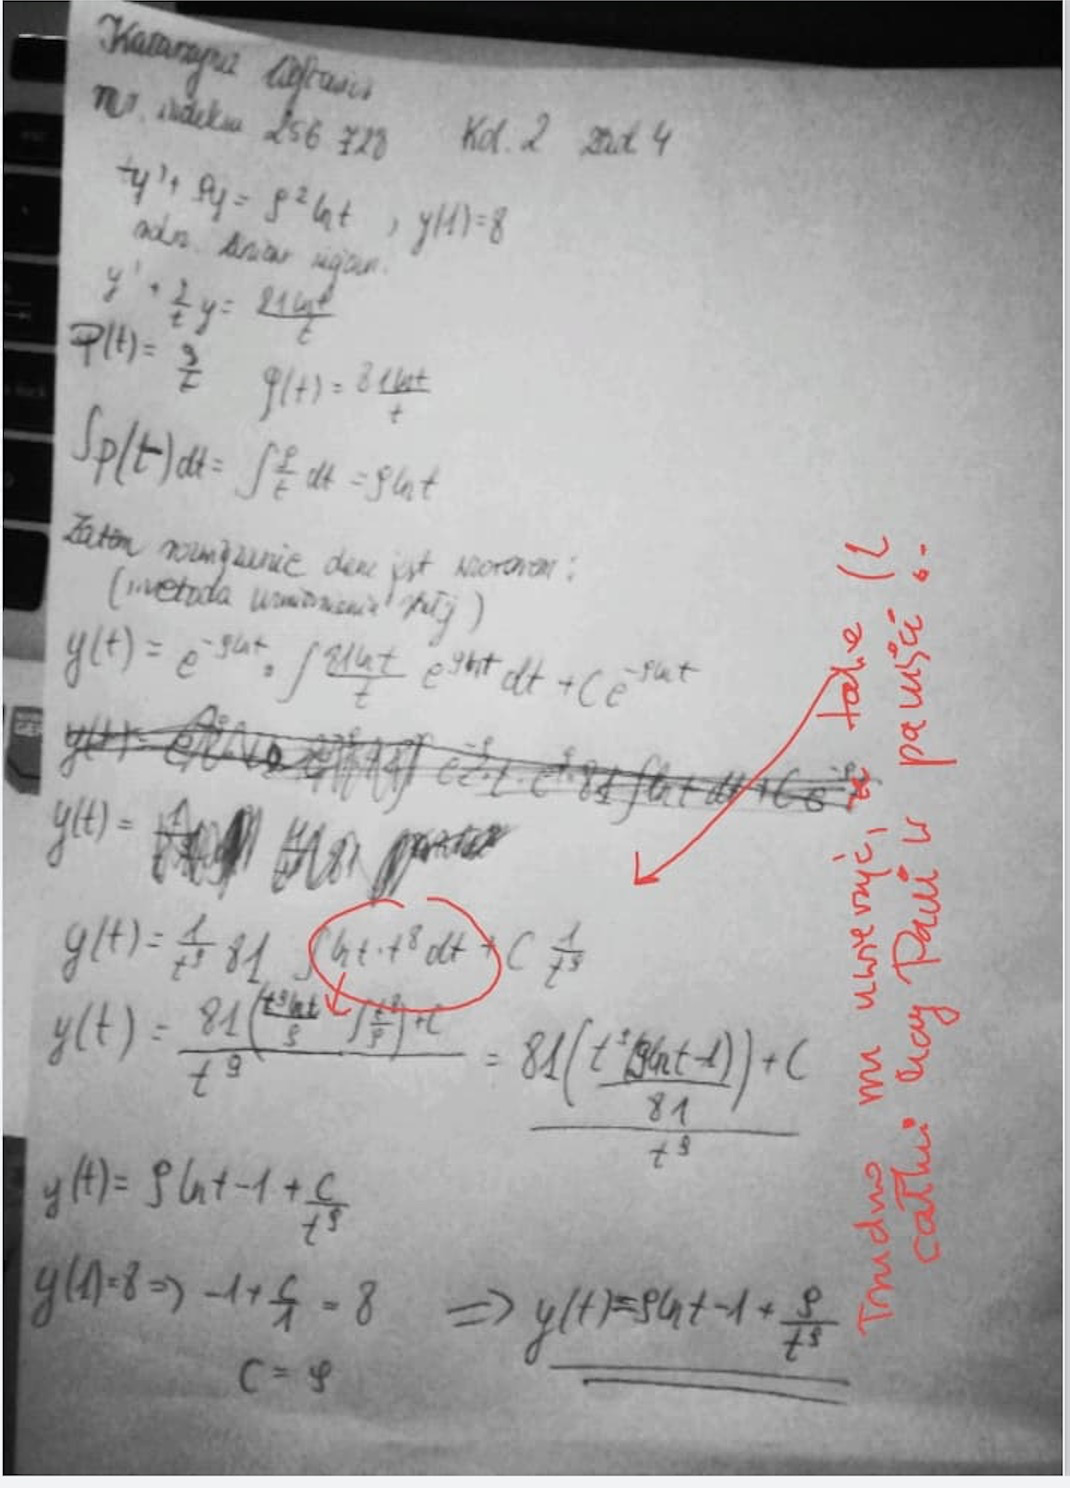 Katarzyna
nr. indeksu 256 728 Kol. 2 zad 4
ty' + 9y = 9² ln t , y(1)=8
y' + 9/t y = 81 ln t / t
p(t) = 9/t q(t) = 81 ln t / t
∫p(t)dt = ∫ 9/t dt = 9 ln t
Zatem rozwiązanie dane jest wzorem:
(metoda uzmienniania stałej)
y(t) = e^(-9 ln t) · ∫ 81 ln t / t e^(9 ln t) dt + C e^(-9 ln t)
y(t) =
y(t) =
y(t) = 1/t⁹ 81 ∫ ln t · t⁸ dt + C 1/t⁹
y(t) = 81(t⁹ ln t / 9 - ∫ t⁸/9) + C / t⁹ = 81(t⁹(9 ln t - 1) / 81) + C / t⁹
y(t) = 9 ln t - 1 + C/t⁹
y(1)=8 => -1 + C/1 = 8 => y(t) = 9 ln t - 1 + 9/t⁹
C = 9
Trudno mi uwierzyć, że takie
całki liczy Pani w pamięci.